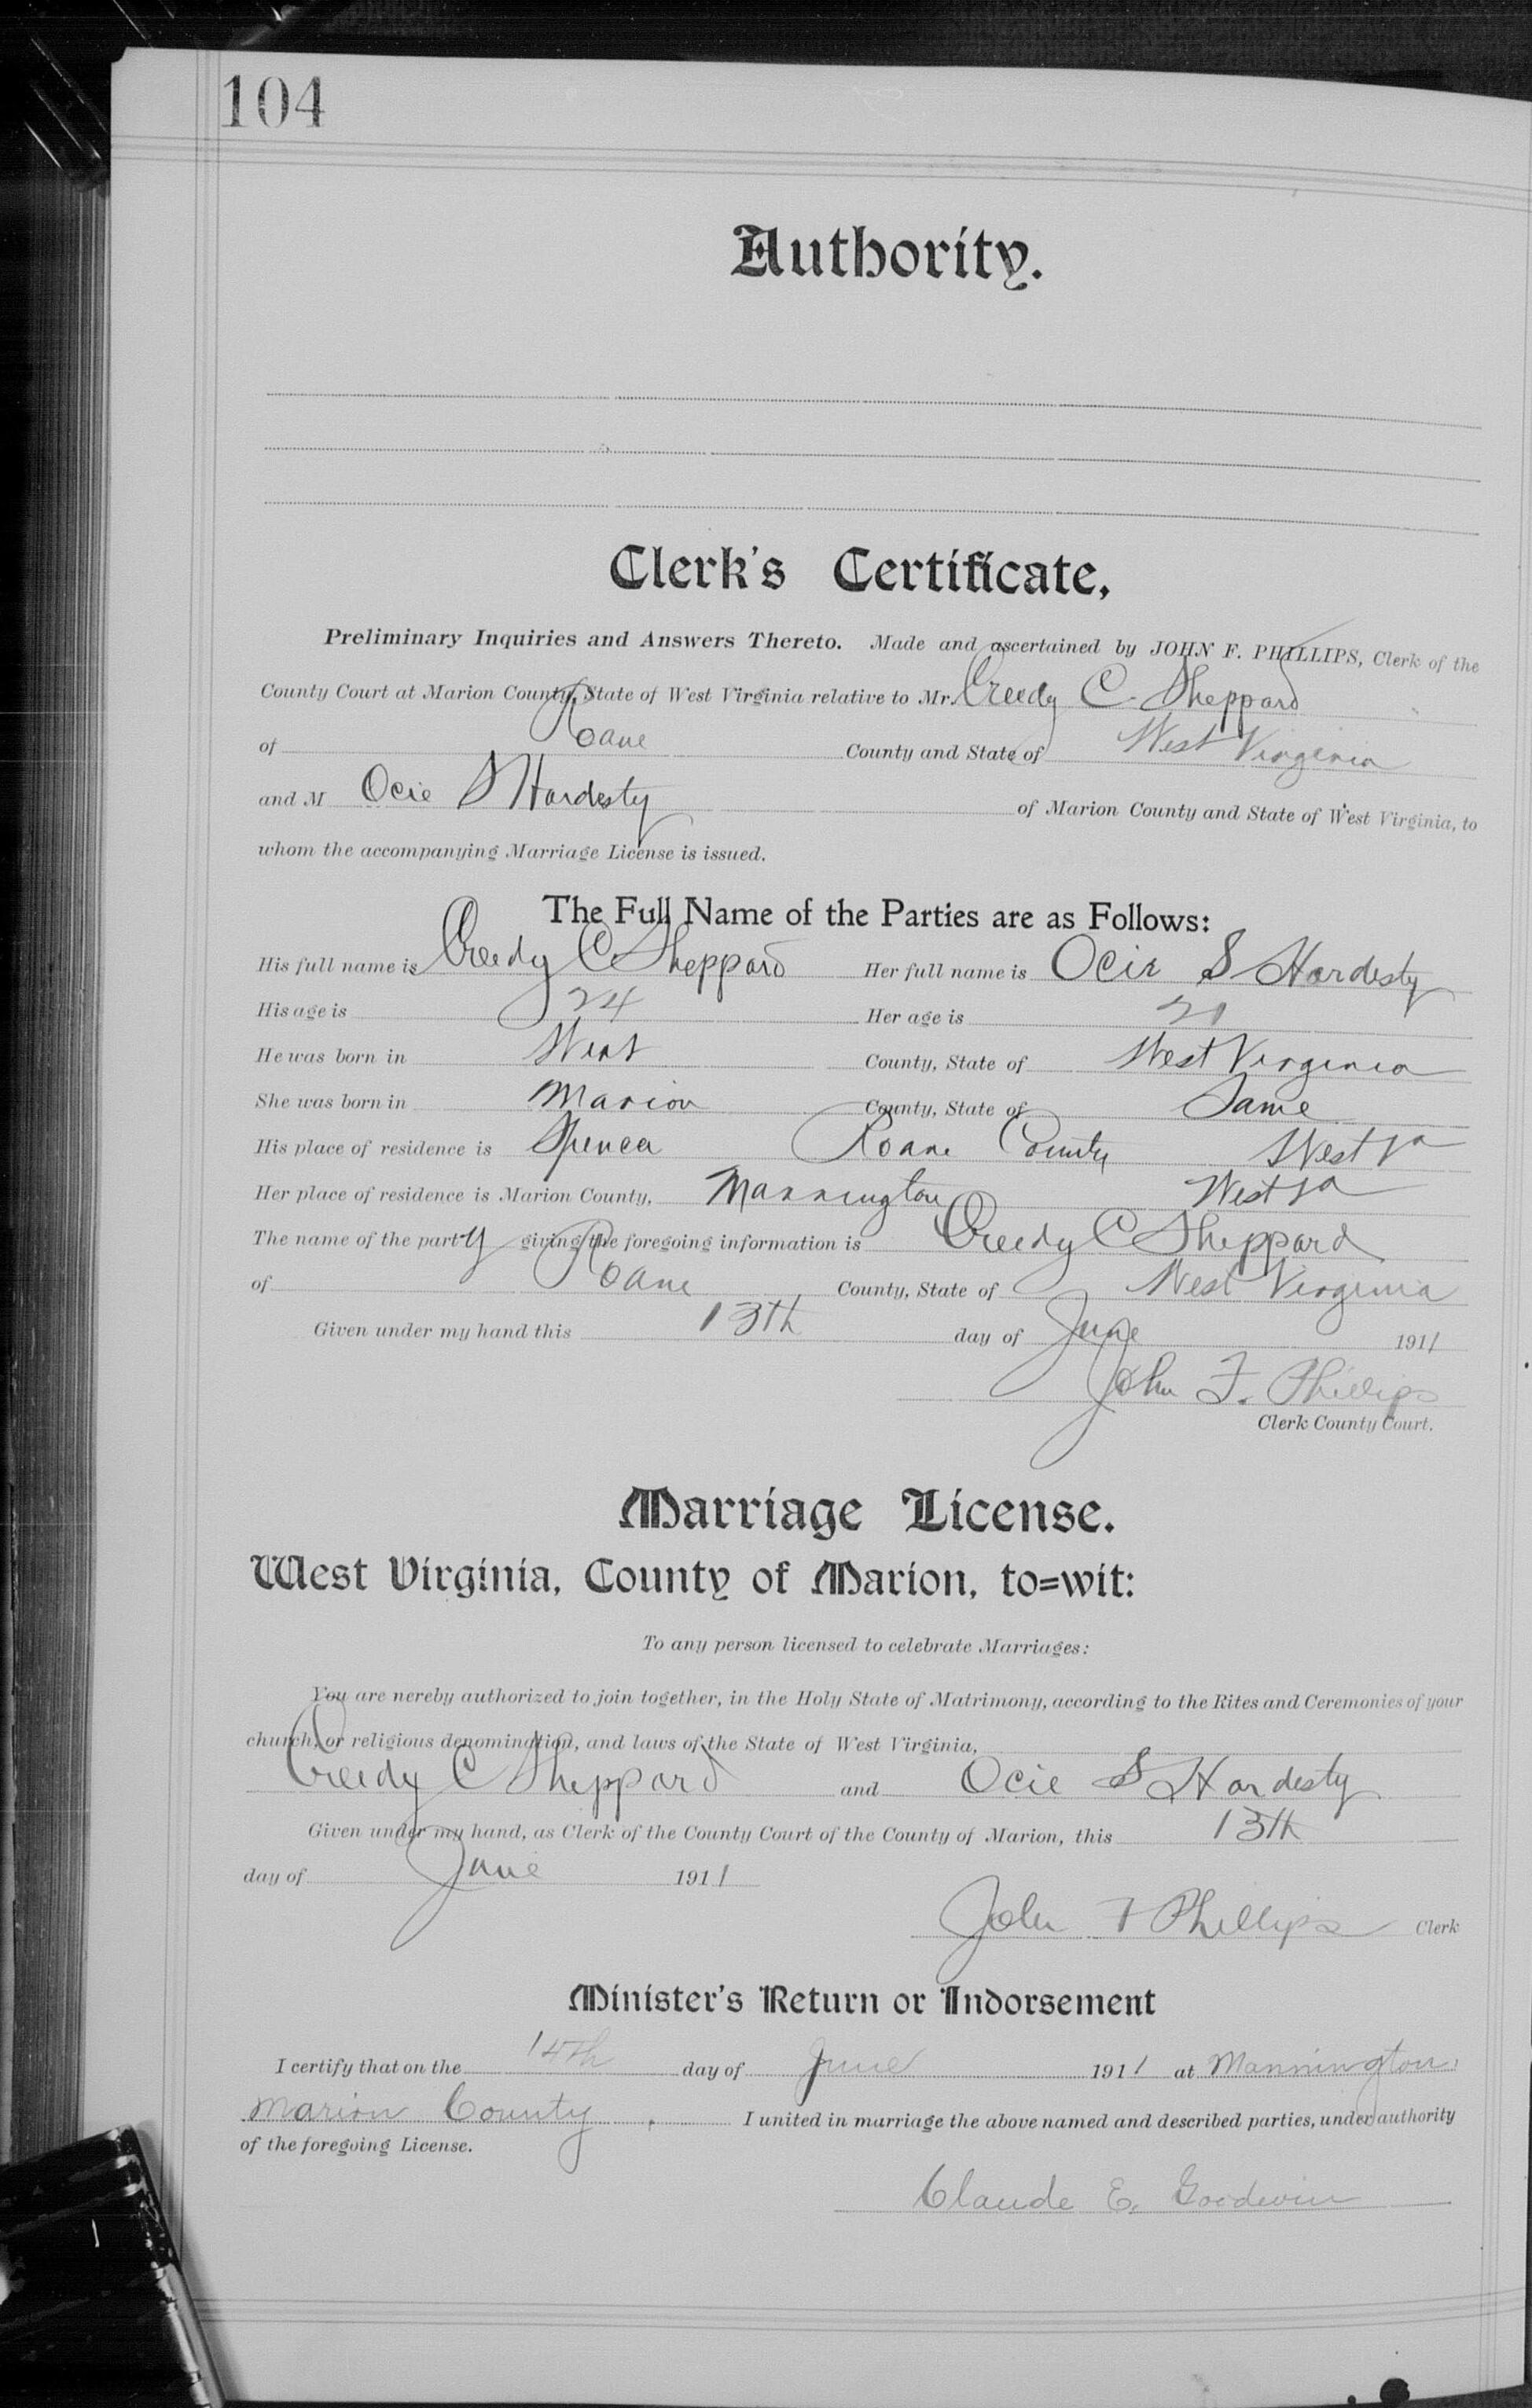 104
Authority.
Clerk's Certificate,
Preliminary Inquiries and Answers Thereto. Made and ascertained by JOHN F. PHILLIPS, Clerk of the
County Court at Marion County, State of West Virginia relative to Mr. Creedy C. Sheppard
of Roane County and State of West Virginia
and M Ocie S Hardesty of Marion County and State of West Virginia, to
whom the accompanying Marriage License is issued.
The Full Name of the Parties are as Follows:
His full name is Creedy C Sheppard Her full name is Ocie S Hardesty
His age is 24 Her age is 21
He was born in Wirt County, State of West Virginia
She was born in Marion County, State of Same
His place of residence is Spencer Roane County West Va
Her place of residence is Marion County, Mannington West Va
The name of the party giving the foregoing information is Creedy C Sheppard
of Roane County, State of West Virginia
Given under my hand this 13th day of June 1911
John F. Phillips
Clerk County Court.
Marriage License.
West Virginia, County of Marion, to=wit:
To any person licensed to celebrate Marriages:
You are nereby authorized to join together, in the Holy State of Matrimony, according to the Rites and Ceremonies of your
church, or religious denomination, and laws of the State of West Virginia,
Creedy C Sheppard and Ocie S Hardesty
Given under my hand, as Clerk of the County Court of the County of Marion, this 13th
day of June 1911
John F Phillips Clerk
Minister's Return or Indorsement
I certify that on the 14th day of June 1911 at Mannington,
Marion County, I united in marriage the above named and described parties, under authority
of the foregoing License.
Claude E. Goodwin